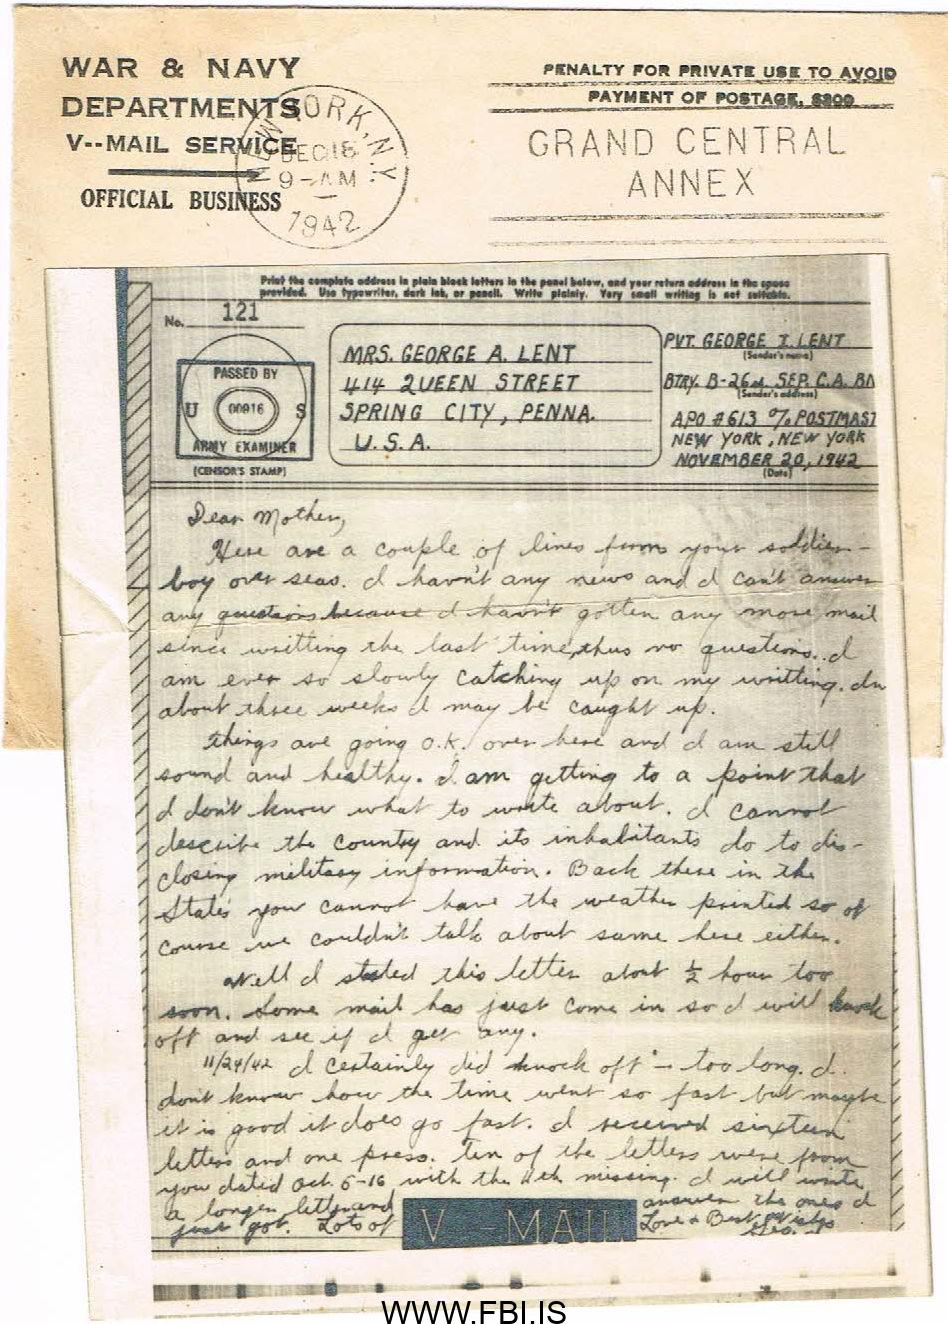 WAR & NAVY
DEPARTMENTS
V--MAIL SERVICE
OFFICIAL BUSINESS
NEW YORK, N.Y.
DEC 16
9-AM
1942
PENALTY FOR PRIVATE USE TO AVOID
PAYMENT OF POSTAGE, $300
GRAND CENTRAL
ANNEX
Print the complete address in plain block letters in the panel below, and your return address in the space
provided. Use typewriter, dark ink, or pencil. Write plainly. Very small writing is not suitable.
No. 121
PASSED BY
U 00916 S
ARMY EXAMINER
(CENSOR'S STAMP)
MRS. GEORGE A. LENT
414 QUEEN STREET
SPRING CITY, PENNA.
U.S.A.
PVT. GEORGE I. LENT
(Sender's name)
BTRY. B-26th SEP. C.A. BN
(Sender's address)
APO #613 % POSTMAST
NEW YORK, NEW YORK
NOVEMBER 20, 1942
(Date)
Dear Mother,
Here are a couple of lines from your soldier-
boy over seas. I havn't any news and I can't answer
any questions because I havn't gotten any more mail
since writting the last time, thus no questions. I
am ever so slowly catching up on my writting. In
about three weeks I may be caught up.
Things are going O.K. over here and I am still
sound and healthy. I am getting to a point that
I don't know what to write about. I cannot
describe the country and its inhabitants do to dis-
closing military information. Back there in the
States you cannot have the weather printed so of
course we couldn't talk about same here either.
Well I stated this letter about ½ hour too
soon. Some mail has just come in so I will knock
off and see if I get any.
11/24/42 I certainly did knock off - too long. I
don't know how the time went so fast but maybe
it is good it does go fast. I received sixteen
letters and one press. Ten of the letters were from
you dated Oct. 5-16 with the 11th missing. I will write
a longer letter and answer the ones I
just got. Lots of Love & Best wishes
Geo.
V - MAIL
WWW.FBI.IS